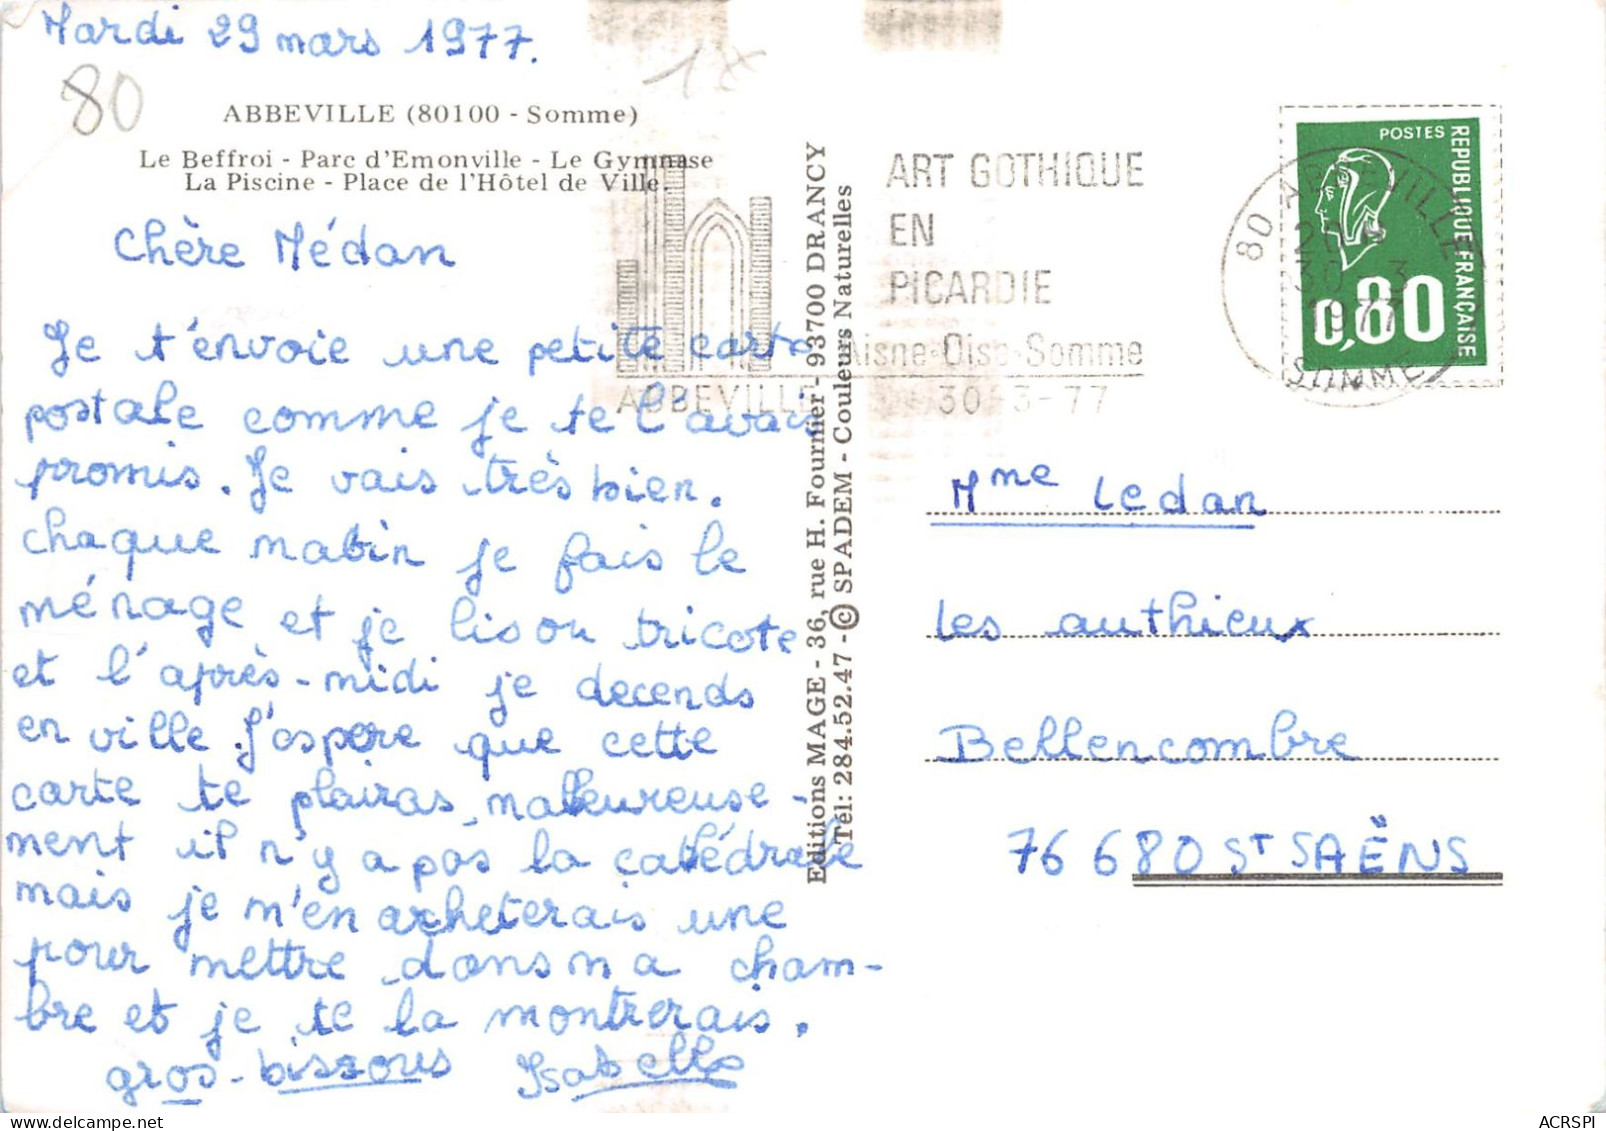 Mardi 29 mars 1977.
80
18
ABBEVILLE (80100 - Somme)
Le Beffroi - Parc d'Emonville - Le Gymnase
La Piscine - Place de l'Hôtel de Ville.
Chère Médan
Je t'envoie une petite carte
postale comme je te l'avais
promis. Je vais très bien.
chaque matin je fais le
ménage et je lis ou tricote
et l'après-midi je decends
en ville. J'espère que cette
carte te plairas, malleureuse-
ment il n'y a pas la cathédrale
mais je m'en acheterais une
pour mettre dans ma cham-
bre et je te la montrerais.
gros-bissous Isabelle
Editions MAGE - 36, rue H. Fournier - 93700 DRANCY
Tél: 284.52.47 - © SPADEM - Couleurs Naturelles
ART GOTHIQUE
EN
PICARDIE
Aisne-Oise-Somme
ABBEVILLE 30-3-77
80 ABBEVILLE
30-3
1977
SOMME
POSTES
REPUBLIQUE FRANÇAISE
0,80
Mme Ledan
Les authieux
Bellencombre
76680 ST SAËNS
ACRSPI